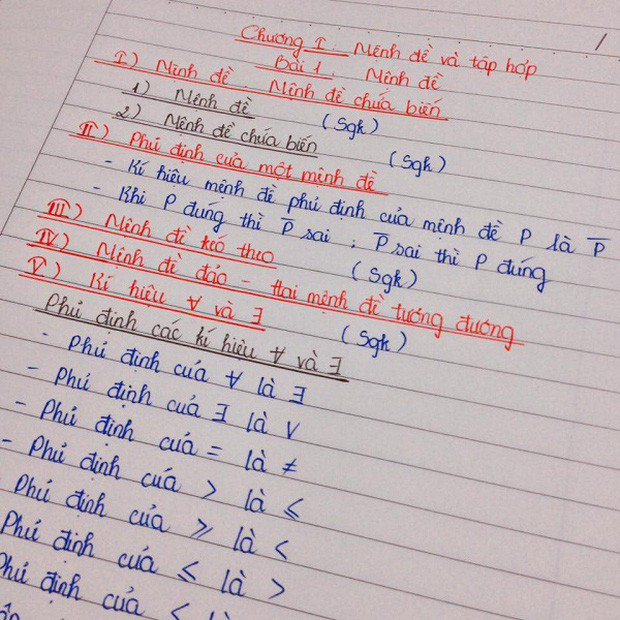 1
Chương I. Mệnh đề và tập hợp
Bài 1 Mệnh đề
I) Mệnh đề. Mệnh đề chứa biến
1) Mệnh đề (Sgk)
2) Mệnh đề chứa biến (Sgk)
II) Phủ định của một mệnh đề
- Kí hiệu mệnh đề phủ định của mệnh đề P là P̅
- Khi P đúng thì P̅ sai ; P̅ sai thì P đúng
III) Mệnh đề kéo theo (Sgk)
IV) Mệnh đề đảo - Hai mệnh đề tương đương
V) Kí hiệu ∀ và ∃ (Sgk)
Phủ định các kí hiệu ∀ và ∃
- Phủ định của ∀ là ∃
- Phủ định của ∃ là V
- Phủ định của = là ≠
- Phủ định của > là ≤
Phủ định của ≥ là <
Phủ định của ≤ là >
Phủ định của <